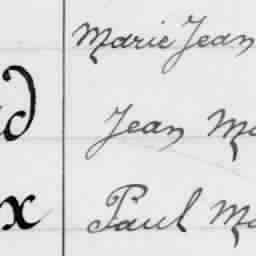 Marie Jean
Jean Ma
Paul Ma